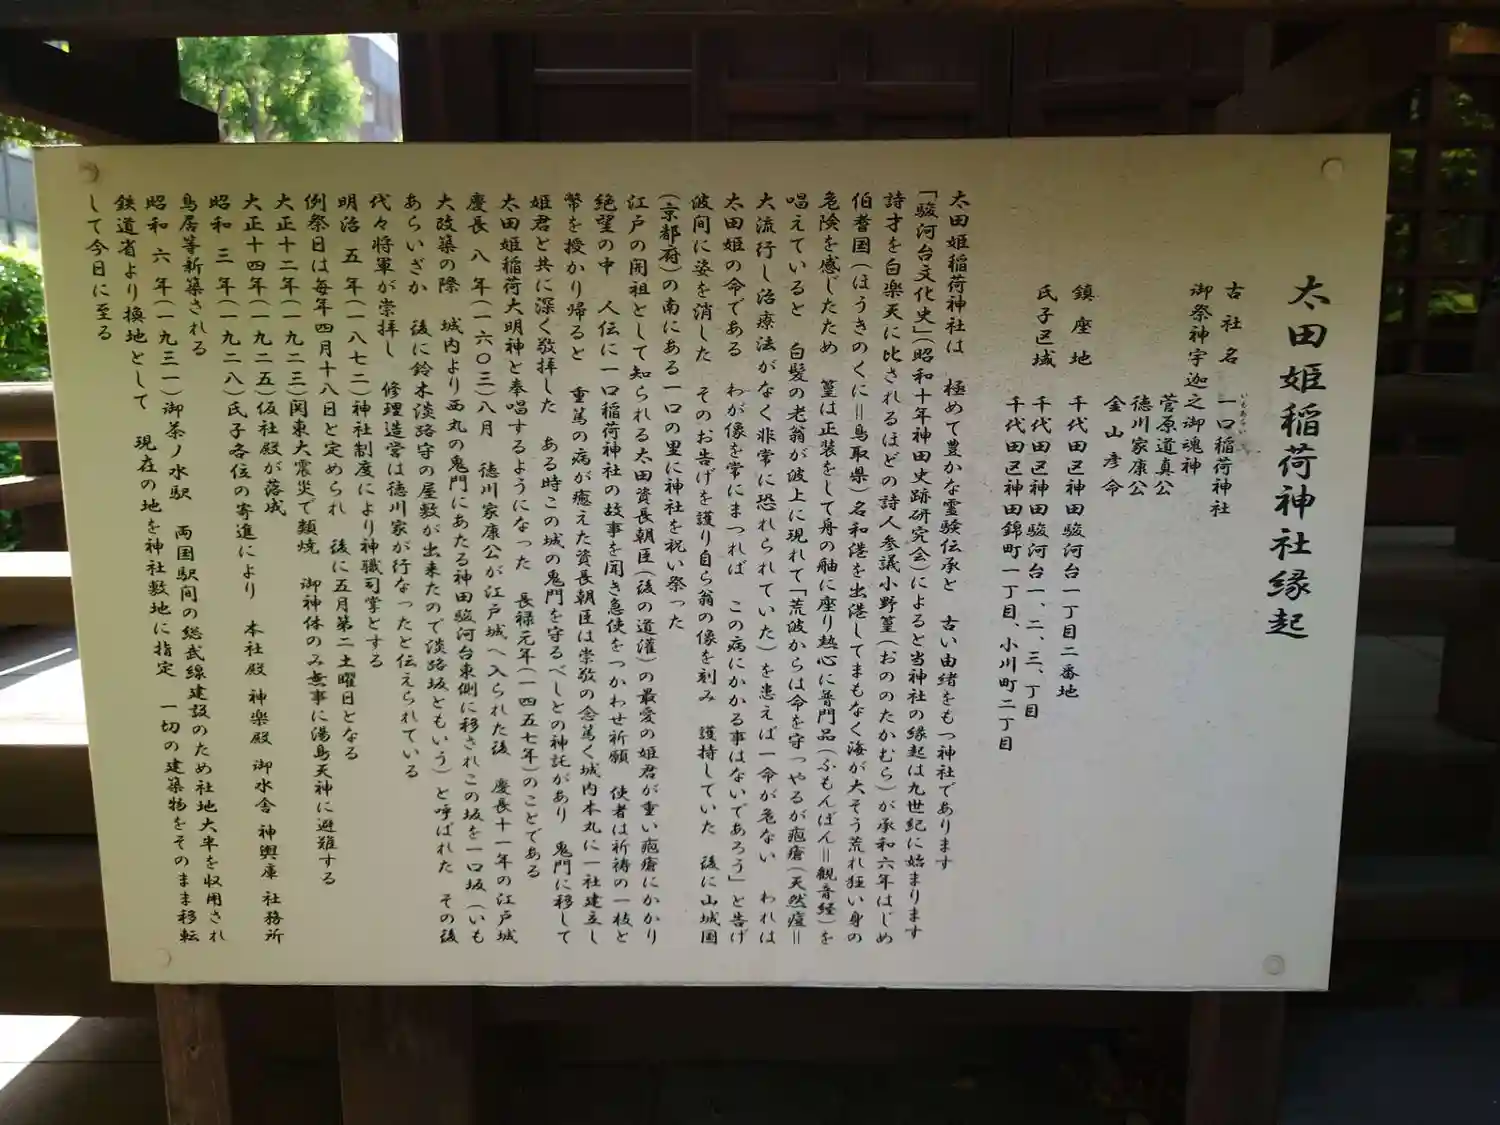 太田姫稲荷神社縁起
古社名 一口稲荷神社
いもあらい
御祭神宇迦之御魂神
菅原道真公
徳川家康公
金山彦命
鎮座地 千代田区神田駿河台一丁目二番地
氏子区域 千代田区神田駿河台一、二、三、丁目
千代田区神田錦町一丁目、小川町二丁目
太田姫稲荷神社は 極めて豊かな霊験伝承と 古い由緒をもつ神社であります
「駿河台文化史」(昭和十年神田史跡研究会)によると当神社の縁起は九世紀に始まります
詩才を白楽天に比されるほどの詩人参議小野篁(おののたかむら)が承和六年はじめ
伯耆国(ほうきのくに=鳥取県)名和港を出港してまもなく海が大そう荒れ狂い身の
危険を感じたため 篁は正装をして舟の舳に座り熱心に普門品(ふもんぼん=観音経)を
唱えていると 白髪の老翁が波上に現れて「荒波からは命を守つやるが疱瘡(天然痘=
大流行し治療法がなく非常に恐れられていた)を患えば一命が危ない われは
太田姫の命である わが像を常にまつれば この病にかかる事はないであろう」と告げ
波間に姿を消した そのお告げを護り自ら翁の像を刻み 護持していた 後に山城国
(京都府)の南にある一口の里に神社を祝い祭った
江戸の開祖として知られる太田資長朝臣(後の道灌)の最愛の姫君が重い疱瘡にかかり
絶望の中 人伝に一口稲荷神社の故事を聞き急使をつかわせ祈願 使者は祈祷の一枝と
幣を授かり帰ると 重篤の病が癒えた資長朝臣は崇敬の念篤く城内本丸に一社建立し
姫君と共に深く敬拝した ある時この城の鬼門を守るべしとの神託があり 鬼門に移して
太田姫稲荷大明神と奉唱するようになった 長禄元年(一四五七年)のことである
慶長 八 年(一六〇三)八月 徳川家康公が江戸城へ入られた後 慶長十一年の江戸城
大改築の際 城内より西丸の鬼門にあたる神田駿河台東側に移されこの坂を一口坂(いも
あらいざか 後に鈴木淡路守の屋敷が出来たので淡路坂ともいう)と呼ばれた その後
代々将軍が崇拝し 修理造営は徳川家が行なったと伝えられている
明治 五 年(一八七二)神社制度により神職司掌とする
例祭日は毎年四月十八日と定められ 後に五月第二土曜日となる
大正十二年(一九二三)関東大震災で類焼 御神体のみ無事に湯島天神に避難する
大正十四年(一九二五)仮社殿が落成
昭和 三 年(一九二八)氏子各位の寄進により 本社殿 神楽殿 御水舎 神輿庫 社務所
鳥居等新築される
昭和 六 年(一九三一)御茶ノ水駅 両国駅間の総武線建設のため社地大半を収用され
鉄道省より換地として 現在の地を神社敷地に指定 一切の建築物をそのまま移転
して今日に至る